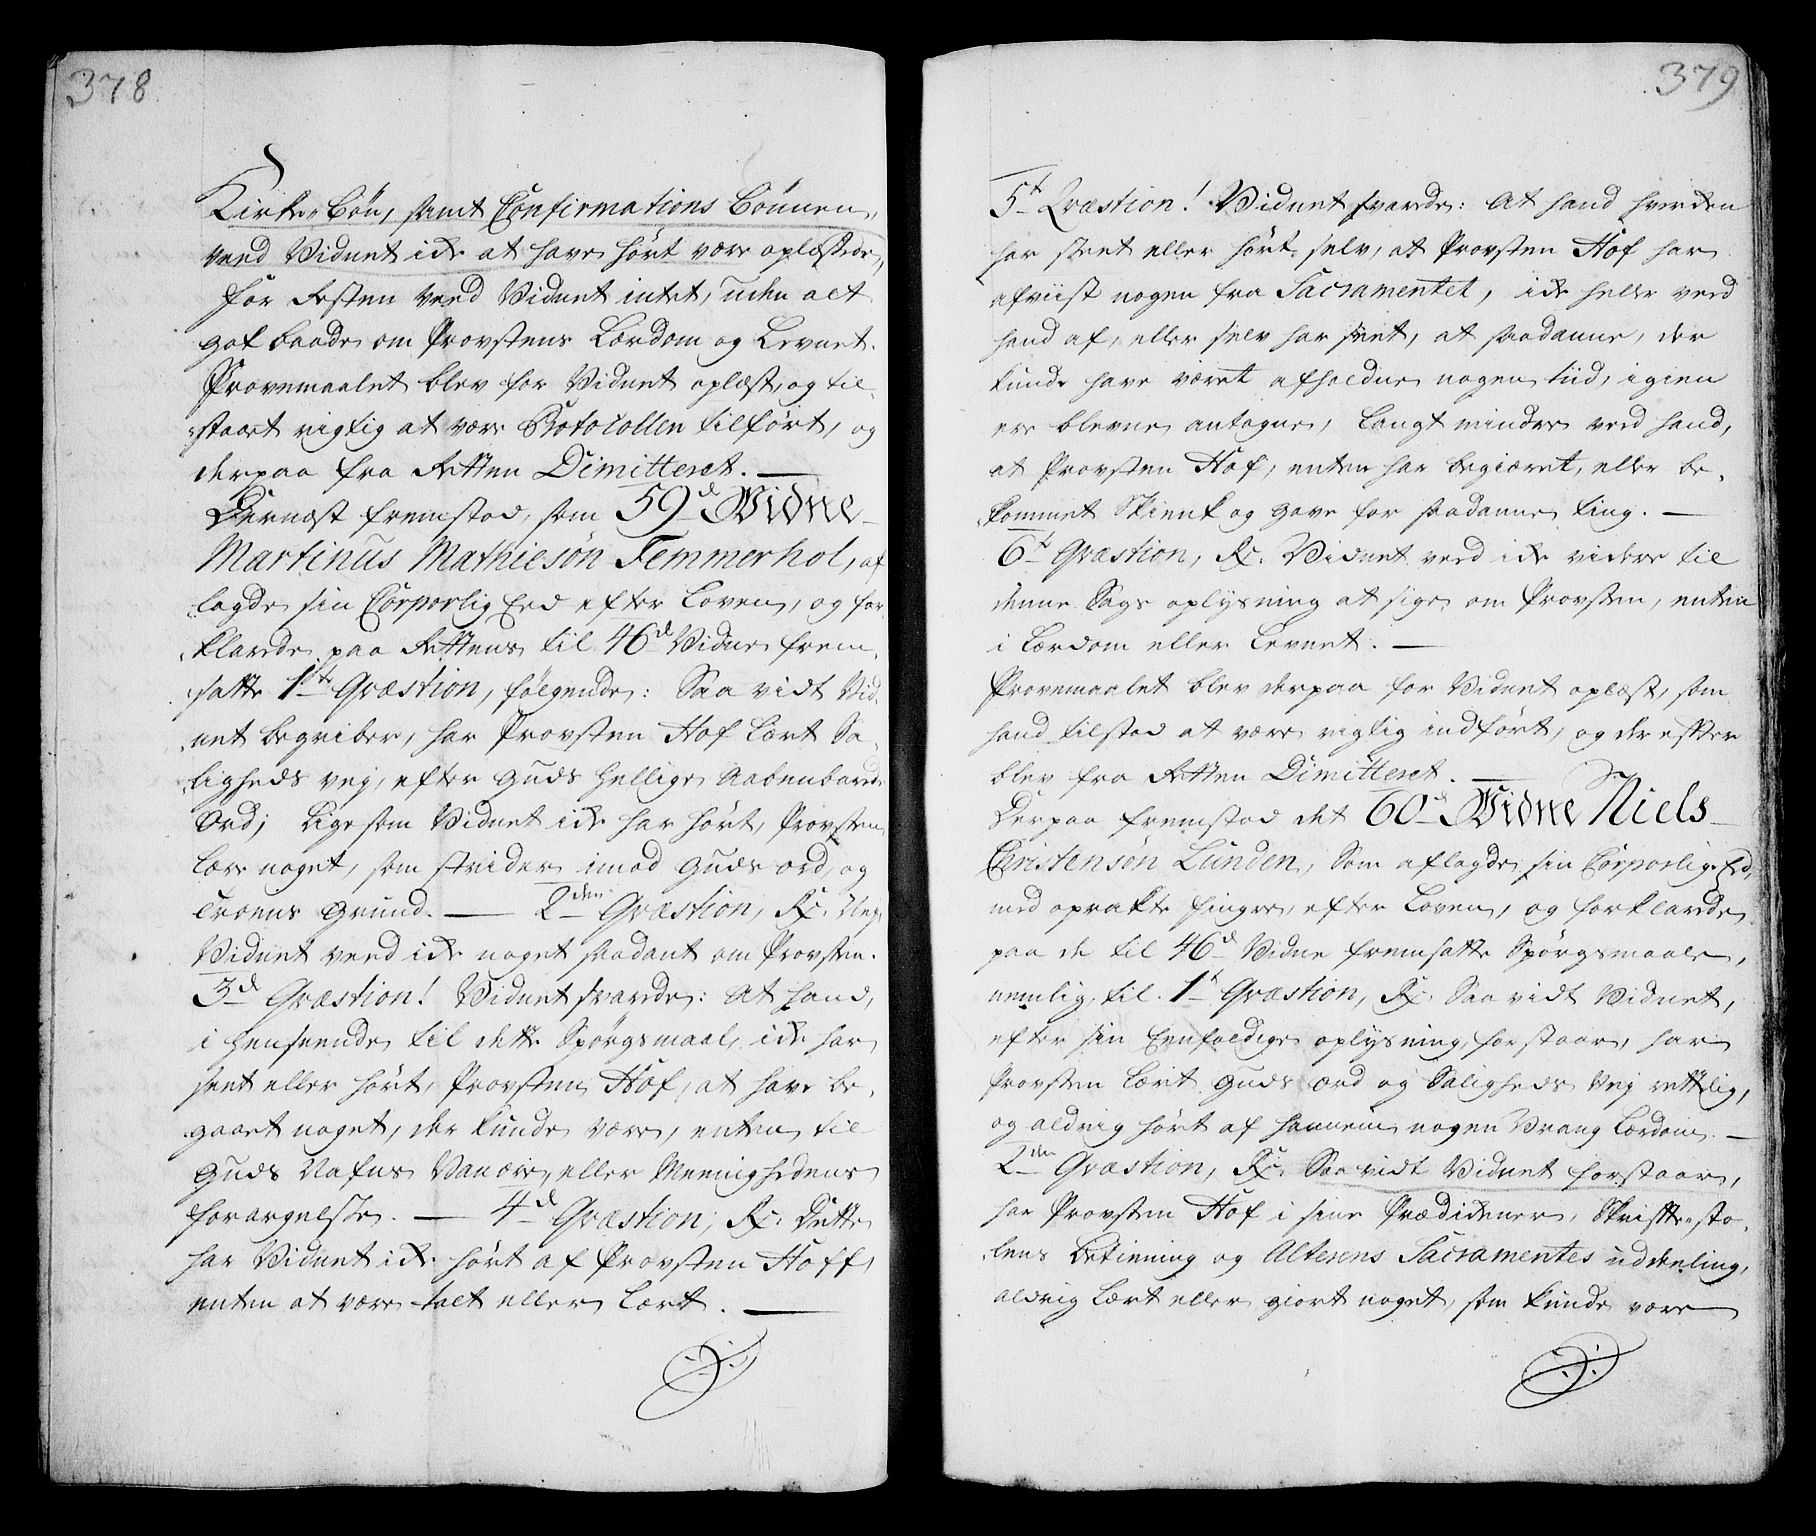 378
Kirke-Bøn, samt Confirmations Bønnen,
veed Vidnet icke at have hørt være oplæste,
for Resten veed Vidnet intet, uden alt
got baade om Provstens Lærdom og Levnet.
Provemaalet blev for Vidnet oplæst, og til-
staaet rigtig at være Protocollen tilført, og
derpaa fra Retten Dimitteret. —
Dernæst fremstod, som 59d Vidne
Martinus Mathiesøn Femmerhol, af-
lagde sin Corporlig Eed efter Loven, og for-
klarede paa Rettens til 46d Vidne frem-
satte 1te Qvæstion, følgende: Saa vidt Vid-
net begriber, har Provsten Hof lært Sa-
ligheds vej, efter Guds Hellige Aabenbarede
Ord; Ligesom Vidnet icke har hørt, Provsten
lære noget, som strider imod Guds ord, og
Troens Grund. — 2den Qvæstion, Rx: Nej,
Vidnet veed icke noget saadant om Provsten.
3d Qvæstion! Vidnet svarede: At hand,
i Henseende til dette Spørgsmaal, icke har
seet eller hørt, Provsten Hof, at have be-
gaaet noget, der kunde være, enten til
Guds Nafns Vanære, eller Meenighedens
forargelse. — 4d Qvæstion, Rx: Dette
har Vidnet icke hørt af Provsten Hoff,
enten at være talt eller Lært. —
379
5t Qvæstion! Vidnet svarede: At hand hverken
har seet eller hørt selv, at Provsten Hof har
afviist nogen fra Sacramentet, icke heller veed
hand af, eller selv har seet, at saadanne, der
kunde have været afholdne nogen tiid, igien
ere blevne antagne, Langt mindre veed hand,
at Provsten Hof, enten har begiæret, eller be-
kommet Skienk og Gave for saadanne ting. —
6t Qvæstion, Rx: Vidnet veed icke videre til
denne Sags oplysning at sige om Provsten, enten
i Lærdom eller Levnet. —
Provemaalet blev derpaa for Vidnet oplæst, som
hand tilstod at være rigtig indført, og derefter
blev fra Retten Dimitteret. —
Derpaa fremstod det 60d Vidne Niels
Christensøn Lunden, Som aflagde sin Corporlige Eed,
med oprakte fingre, efter Loven, og forklarede
paa de til 46d Vidne fremsatte Spørgsmaale,
nemlig, til 1t Qvæstion, Rx: Saa vidt Vidnet,
efter sin Eenfoldige oplysning, forstaar, har
Provsten Lært Guds ord og Saligheds Vej rettelig,
og aldrig hørt af hannem nogen Vrang Lærdom. —
2den Qvæstion, Rx: Saa vidt Vidnet forstaar,
har Provsten Hof i sine Prædickener, Skriftesto-
lens Betienning og Alterens Sacramentes uddeeling,
aldrig Lært eller giort noget, som kunde være